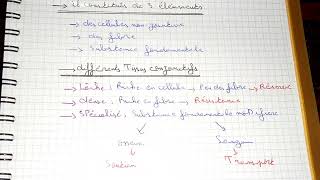 → il constitués de 3 éléments
→ des cellules non jointives
→ des fibres
→ Substance fondamentale
→ différents Types conjonctifs
→ Lâche : Riche en cellule → Peu de fibre →
→ dense : Riche en fibre → Résistance
→ Spécialisé : Substance fondamentale modifiée
osseux Sanguin
Soutien Transport